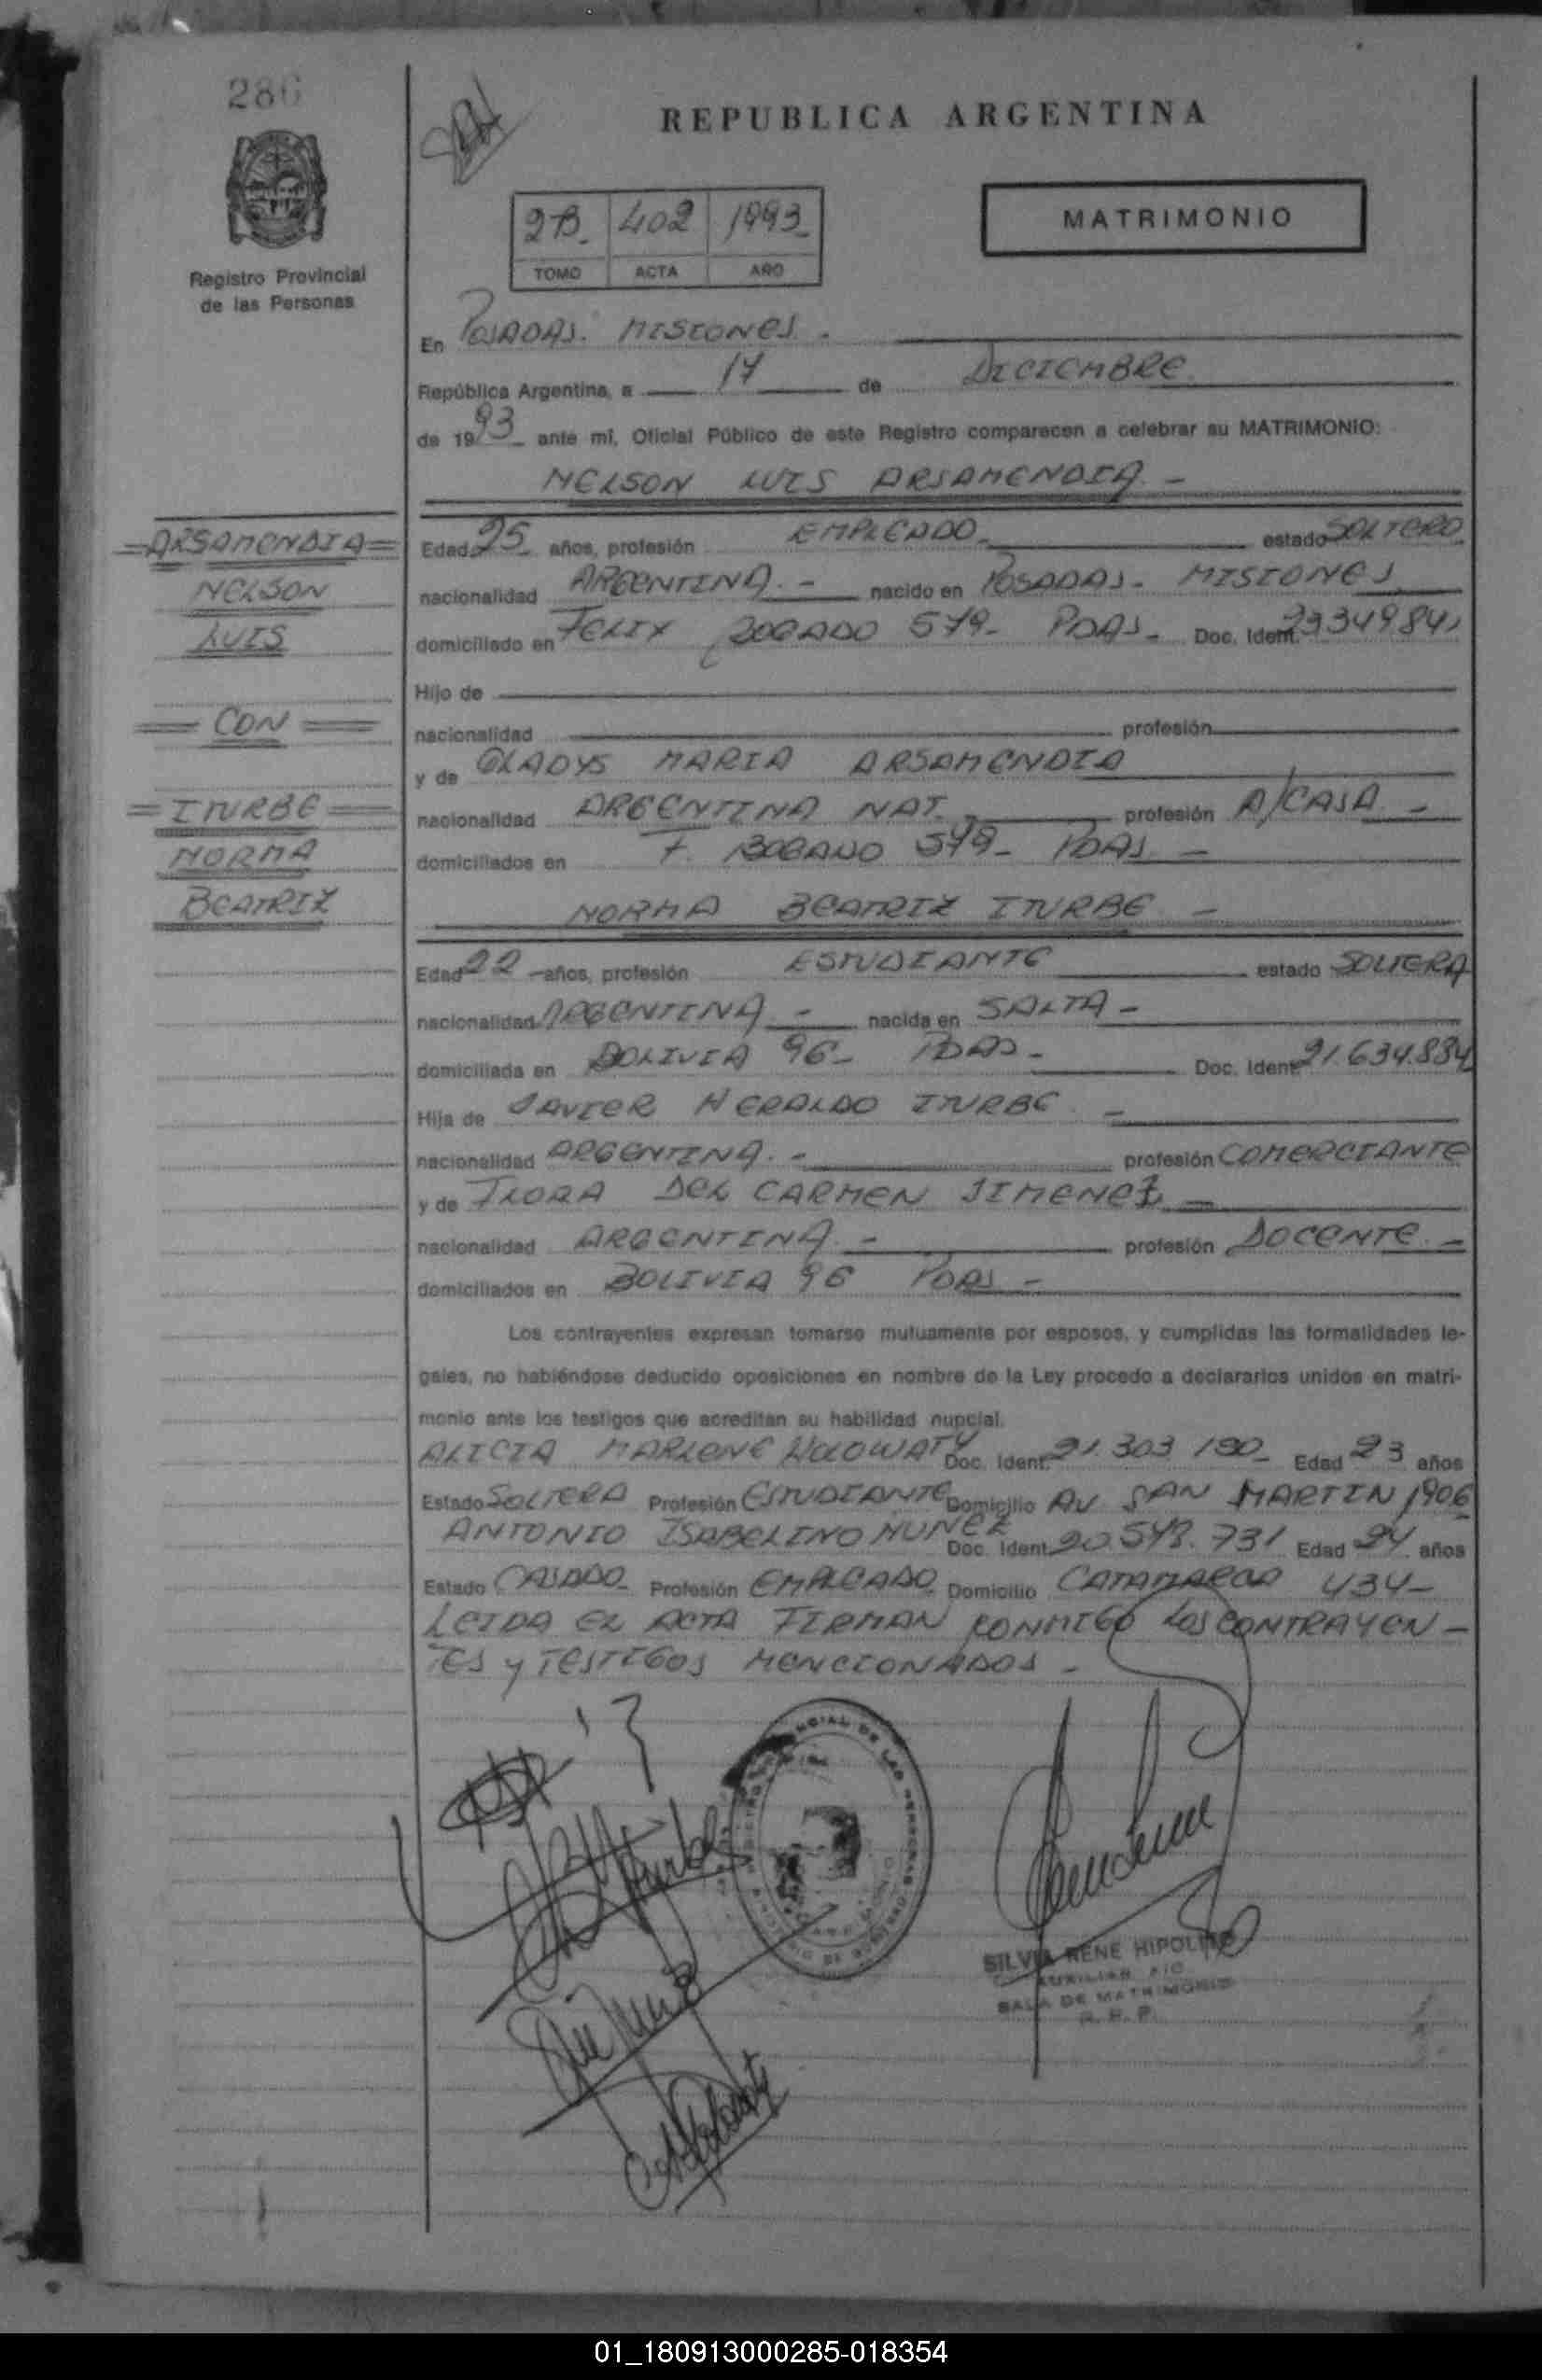 286
REPUBLICA ARGENTINA
2B. 402 1993
TOMO ACTA AÑO
MATRIMONIO
Registro Provincial
de las Personas
En POSADAS. MISIONES.
República Argentina, a 17 de DICIEMBRE.
de 1993 ante mí, Oficial Público de este Registro comparecen a celebrar su MATRIMONIO:
NELSON LUIS ARSAMENDIA -
=ARSAMENDIA=
NELSON
LUIS
= CON =
= ITURBE =
NORMA
BEATRIZ
Edad 25 años, profesión EMPLEADO. estado SOLTERO.
nacionalidad ARGENTINA. - nacido en POSADAS - MISIONES
domiciliado en FELIX BOGADO 579 - PDAS - Doc. Ident.
Hijo de
nacionalidad profesión
y de GLADYS MARIA ARSAMENDIA
nacionalidad ARGENTINA NAT. profesión A/CASA -
domiciliados en F. BOGADO 579 - PDAS -
NORMA BEATRIZ ITURBE -
Edad 22 - años, profesión ESTUDIANTE estado SOLTERA
nacionalidad ARGENTINA - nacida en SALTA -
domiciliada en BOLIVIA 96 - PDAS - Doc. Ident. 21.634.884
Hija de JAVIER HERALDO ITURBE -
nacionalidad ARGENTINA. - profesión COMERCIANTE
y de FLORA DEL CARMEN JIMENEZ -
nacionalidad ARGENTINA - profesión DOCENTE. -
domiciliados en BOLIVIA 96 PDAS -
Los contrayentes expresan tomarse mutuamente por esposos, y cumplidas las formalidades le-
gales, no habiéndose deducido oposiciones en nombre de la Ley procedo a declararlos unidos en matri-
monio ante los testigos que acreditan su habilidad nupcial.
ALICIA MARLENE WOLOWATY Doc. Ident. 21.303.190 - Edad 23 años
Estado SOLTERA Profesión ESTUDIANTE Domicilio AV. SAN MARTIN 1906
ANTONIO ISABELINO NUÑEZ Doc. Ident. 20.548.731 Edad 24 años
Estado CASADO - Profesión EMPLEADO Domicilio CATAMARCA 434 -
LEIDA EL ACTA FIRMAN CONMIGO LOS CONTRAYEN -
TES Y TESTIGOS MENCIONADOS -
SILVIA RENE HIPOLITO
AUXILIAR
SALA DE MATRIMONIO
R. P. P.
01_180913000285-018354